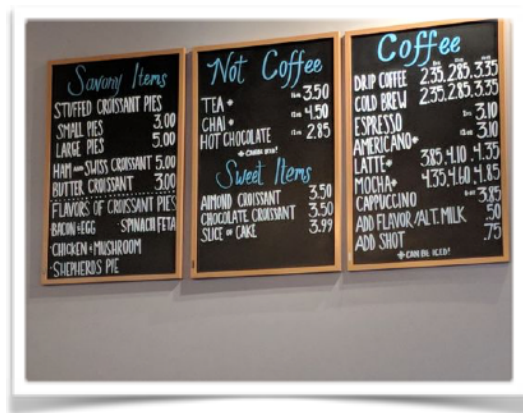 Savory Items
STUFFED CROISSANT PIES
SMALL PIES 3.00
LARGE PIES 5.00
HAM AND SWISS CROISSANT 5.00
BUTTER CROISSANT 3.00
FLAVORS OF CROISSANT PIES
·BACON & EGG ·SPINACH FETA
·CHICKEN & MUSHROOM
·SHEPHERDS PIE
Not Coffee
TEA+ 3.50
CHAI+ 4.50
HOT CHOCOLATE 2.85
+CAN BE ICED!
Sweet Items
ALMOND CROISSANT 3.50
CHOCOLATE CROISSANT 3.50
SLICE OF CAKE 3.99
Coffee
DRIP COFFEE 2.35. 2.85. 3.35
COLD BREW 2.35. 2.85. 3.35
ESPRESSO 3.10
AMERICANO+ 3.10
LATTE+ 3.85. 4.10. 4.35
MOCHA+ 4.35. 4.60. 4.85
CAPPUCCINO 3.85
ADD FLAVOR/ALT. MILK .50
ADD SHOT .75
+CAN BE ICED!